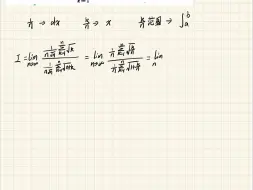 1/n → dx  k/n → x  k/n 范围 → ∫_a^b
I = lim_{n→∞} \frac{\frac{1}{n\sqrt{n}} \sum_{k=1}^{n} \sqrt{k}}{\frac{1}{n\sqrt{n}} \sum_{k=1}^{n} \sqrt{n+k}} = lim_{n→∞} \frac{\frac{1}{n} \sum_{k=1}^{n} \sqrt{\frac{k}{n}}}{\frac{1}{n} \sum_{k=1}^{n} \sqrt{1+\frac{k}{n}}} = lim_n